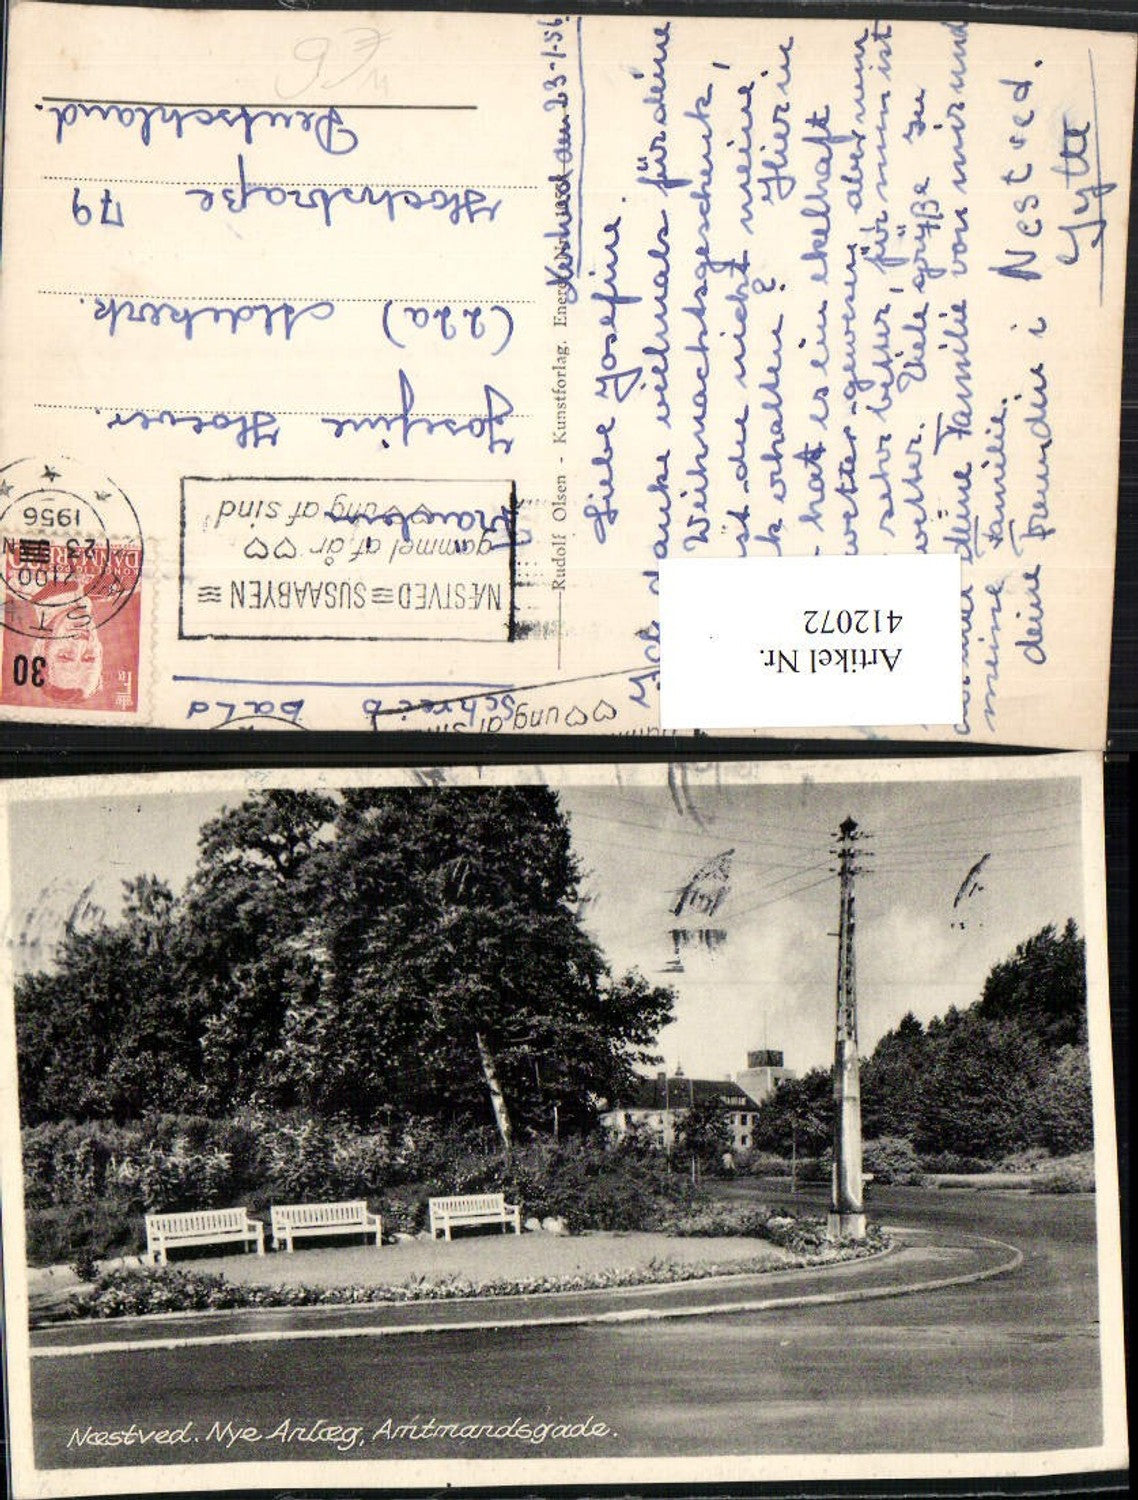 Næstved den 23-1-56
Liebe Josefine.
Ich danke vielmals für deine
Weihnachtsgeschenk,
ist du nicht meine
erhalten? Hier in
hat es ein ekelhaft
wetter gewesen, aber nun
sehr better, für nun ist
wetter. Viele grüße zu
deine Familie von mir und
meine Familie.
deine Freundin i Nestved.
Jytte
Schreib bald
Rudolf Olsen - Kunstforlag. Eneret
Fräulein
Josefine Hoever
(22a) Aldekerk.
Hochstraße 79
Deutschland.
NÆSTVED SUSAABYEN
gammel af år
ung af sind
ung af sind
1956
23
2100
30
DANMARK
Artikel Nr.
412072
Næstved. Nye Anlæg, Amtmandsgade.